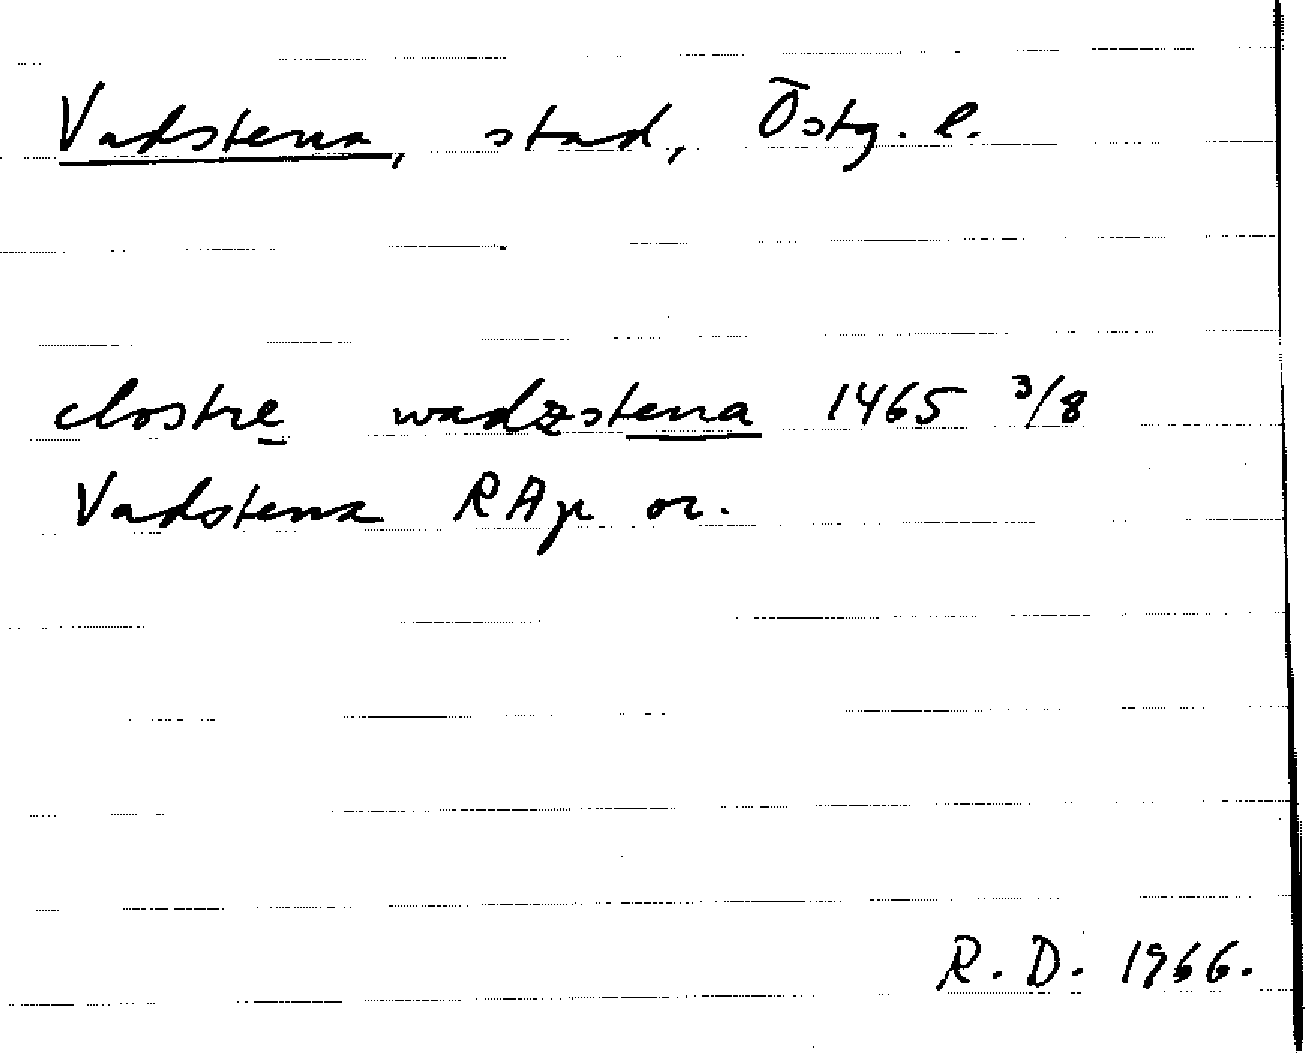 Vadstena, stad, Östg. l.
clostre wadzstena 1465 3/8
Vadstena RAp or.
R. D. 1966.